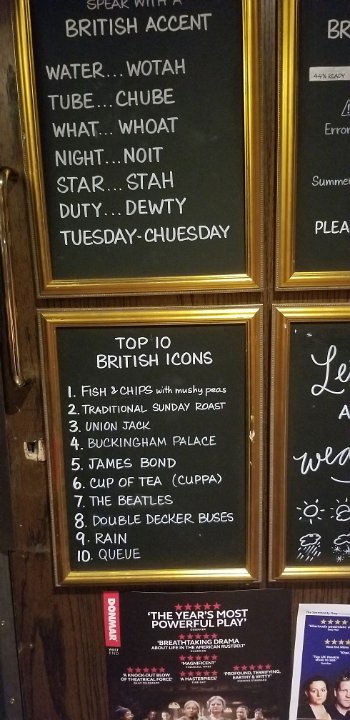 SPEAK WITH A
BRITISH ACCENT
WATER...WOTAH
TUBE...CHUBE
WHAT...WHOAT
NIGHT...NOIT
STAR...STAH
DUTY...DEWTY
TUESDAY-CHUESDAY
TOP 10
BRITISH ICONS
1. FISH & CHIPS with mushy peas
2. TRADITIONAL SUNDAY ROAST
3. UNION JACK
4. BUCKINGHAM PALACE
5. JAMES BOND
6. CUP OF TEA (CUPPA)
7. THE BEATLES
8. DOUBLE DECKER BUSES
9. RAIN
10. QUEUE
BR
44% READY
Error
Summe
PLEA
Le
A
wea
DONMAR
'THE YEAR'S MOST
POWERFUL PLAY'
'BREATHTAKING DRAMA
ABOUT LIFE IN THE AMERICAN RUSTBELT'
'MAGNIFICENT'
'A KNOCK-OUT BLOW
OF THEATRICAL FORCE'
'A MASTERPIECE'
'PROFOUND, TERRIFYING,
EARTHY & WITTY'